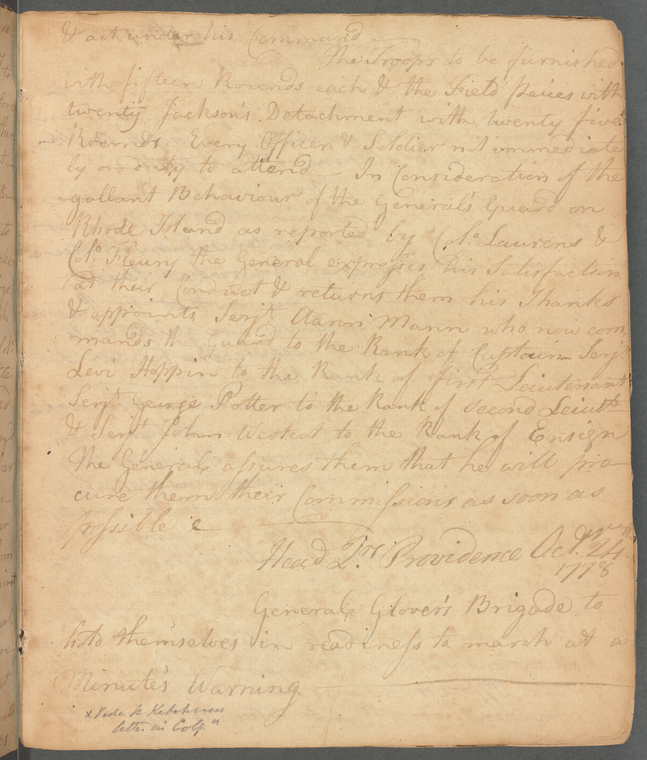 & act under his Command
The Troops to be furnished
with fifteen Rounds each & the Field peices with
twenty Jackson's Detachment with twenty five
Rounds Every Officer & Soldier not immediate
ly on duty to attend – In Consideration of the
gallant Behaviour of the General's Guard on
Rhode Island as reported by Colo. Laurens &
Colo. Fleury the General expresses his Satisfaction
at their Conduct & returns them his Thanks
& appoints Serjt. Aaron Mann who now com
mands the Guard to the Rank of Captain Serjt
Levi Hoppin to the Rank of first Lieutenant
Serjt. George Potter to the Rank of second Leiut.
& Serjt John Westcot to the Rank of Ensign
The General assures them that he will pro
cure them their Commissions as soon as
possible
Head Qrs. Providence Octr. 24
1778
General Glover's Brigade to
hold themselves in readiness to march at a
Minute's Warning
x Vide
letter in